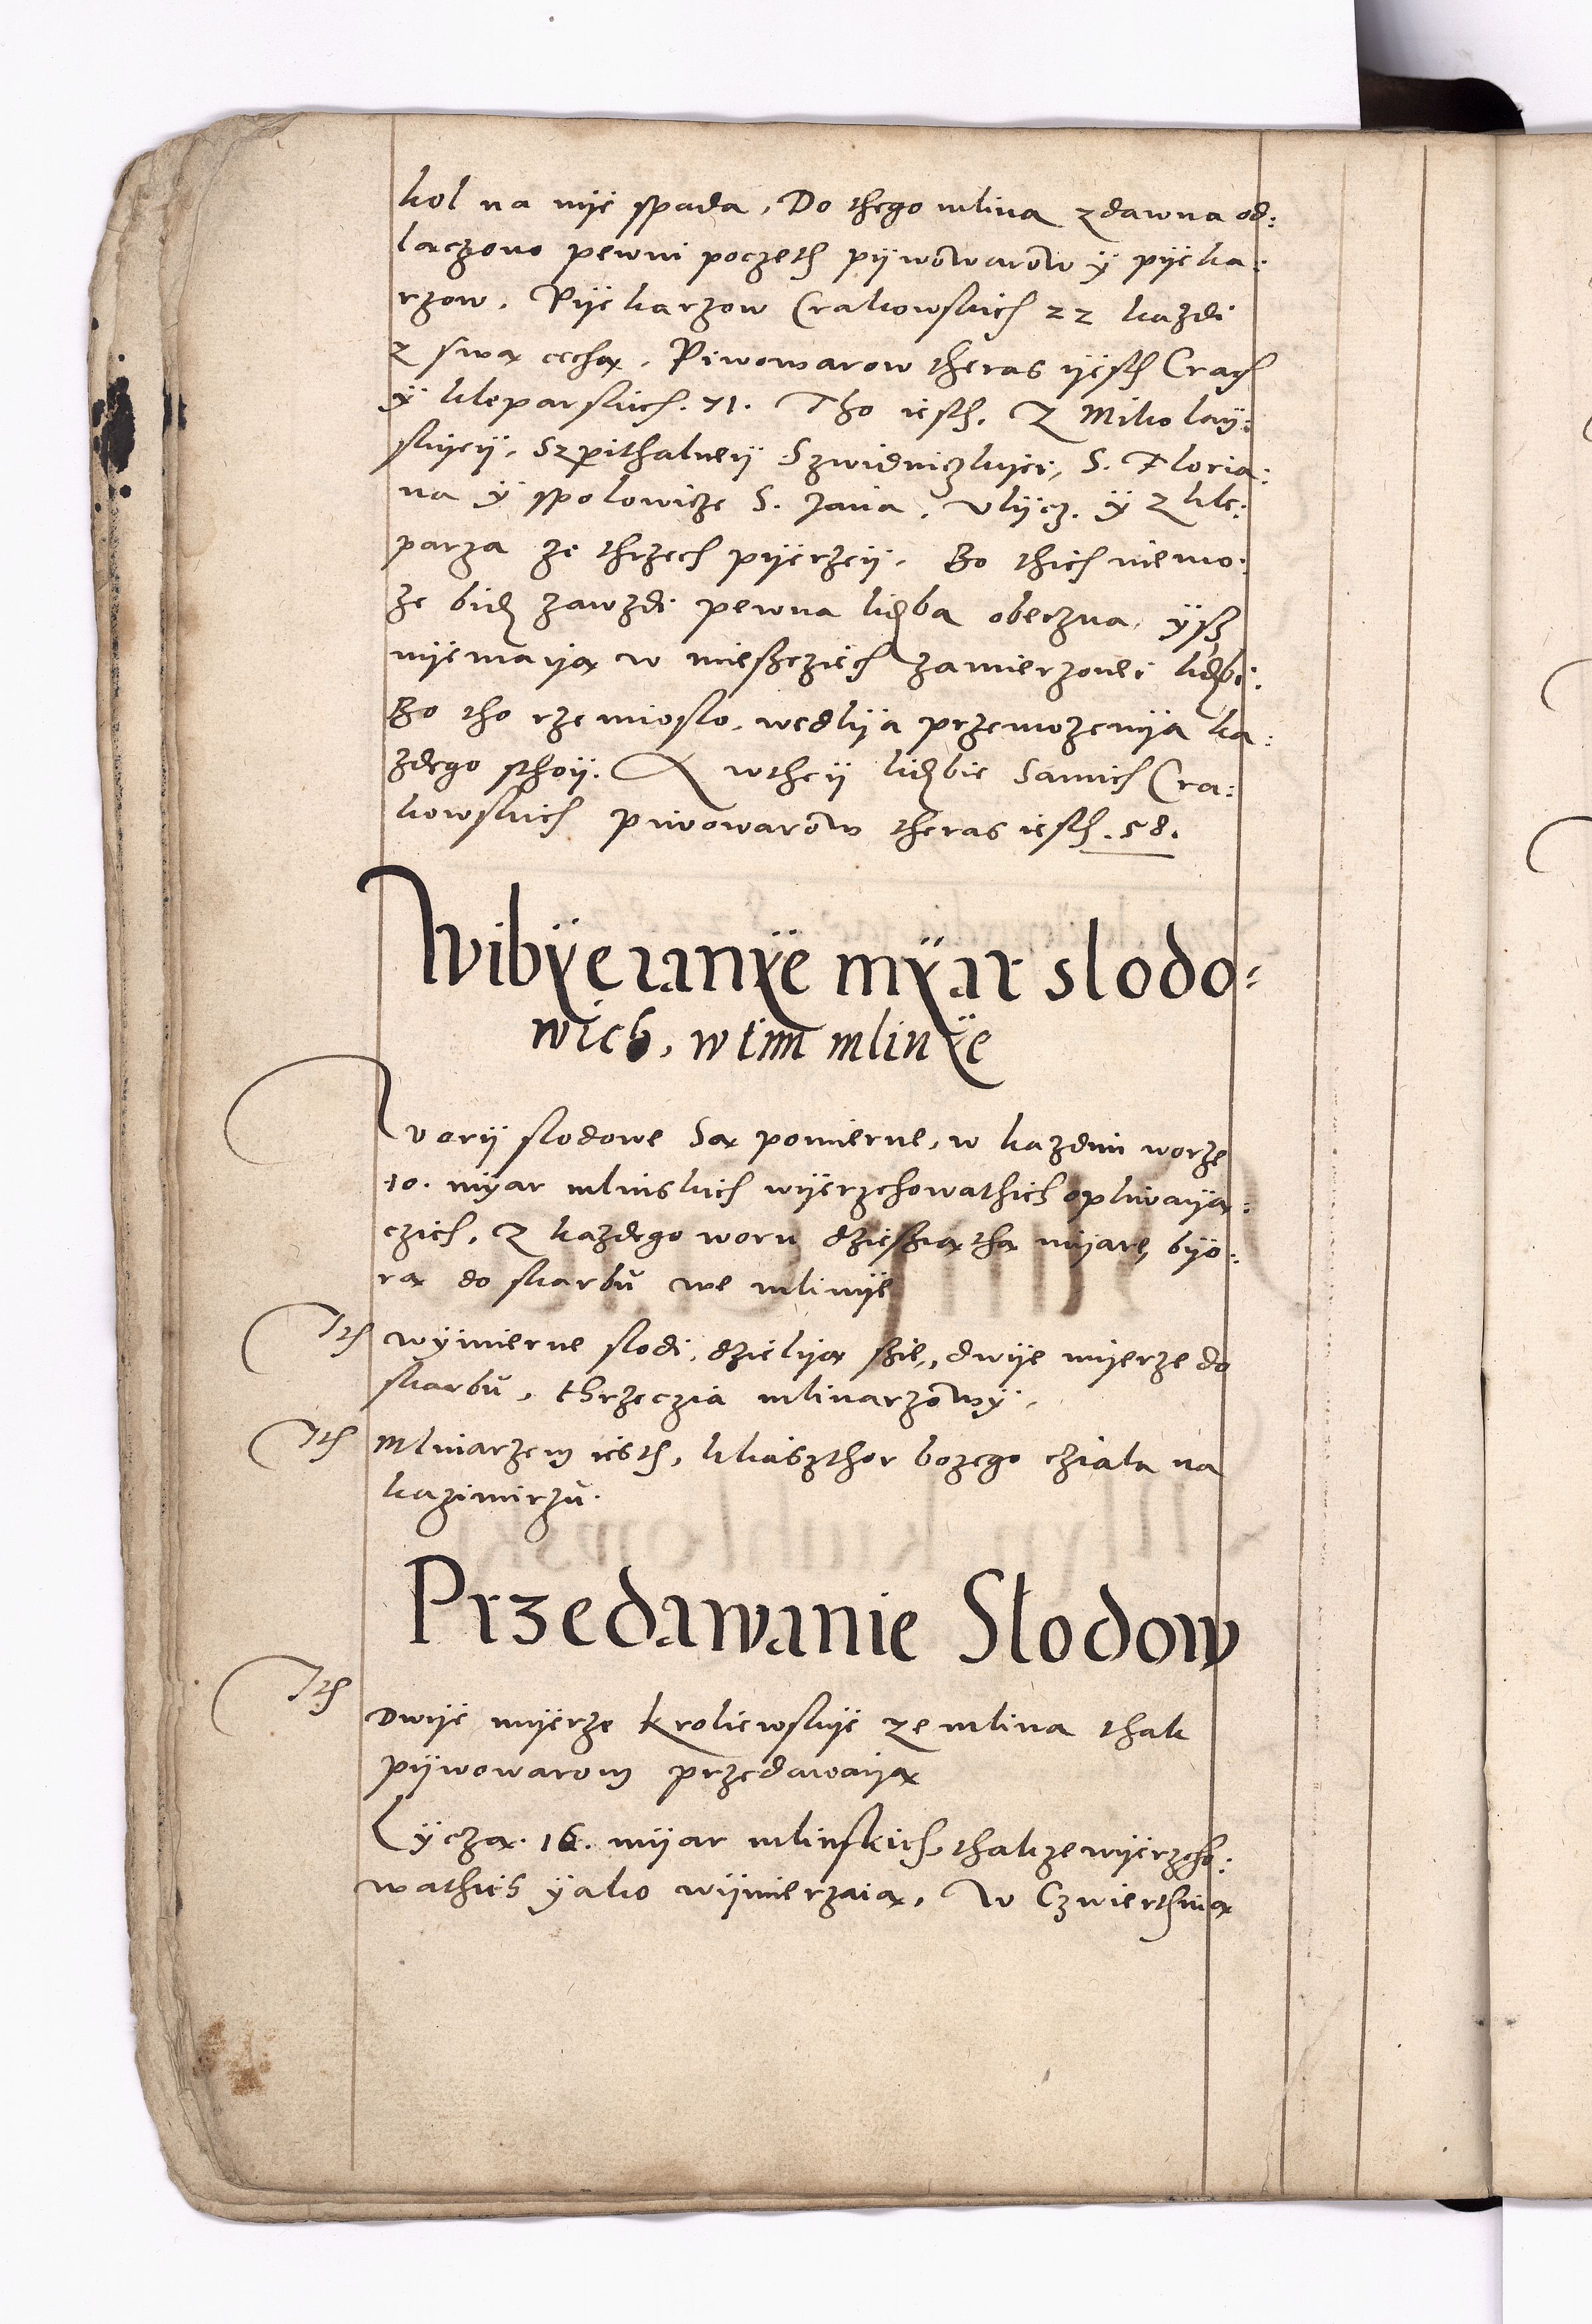 kol na nÿe spada, Do thego mlina zdawna od:
laczono pewni poczeth pÿwowarow ÿ pÿeka:
rzow. Pÿekarzow Crakowskich 22 kazdi
z swa cecha. Piwowarow theras ÿesth Crach
ÿ kleparskich. 71. Tho iesth. Z Mikolaÿ:
skÿeÿ, Szpithalneÿ Szwidniczkÿei, S. Floria:
na ÿ spolowicze S. Jana, vlÿcz. ÿ z kle:
parza ze thrzech pÿerzeÿ. Bo thich niemo:
ze bidz zawzdi pewna lidzba obeczna, ÿsz
nÿemaÿa w miesczech zamierzonei lidzbi:
Bo tho rzemioslo, wedlÿa przemozenÿa ka:
zdego sthoÿ. A wtheÿ lidzbie Samich Cra:
kowskich piwowarow theras iesth. 58.
Wibÿeranÿe mÿar slodo:
wich, w tim mlinÿe
Vorÿ slodowe Sa pomierne, w kazdim worze
10. mÿar mlinskich wÿerzchowathich oplwaÿa:
czich, Z kazdego woru dziesiatha mÿare bÿo:
ra do skarbu we mlinÿe
Ith wÿmierne slodi, dzielÿa szie, dwÿe mÿerze do
skarbu, thrzeczia mlinarzowÿ,
Ith Mlinarzem iesth, kliaszthor bozego cziala na
kazimirzu.
Przedawanie Slodow
Ith Dwÿe mÿerze kroliewskÿe ze mlina thak
pÿwowarom przedawaÿa
Lÿcza. 16. mÿar mlinskich, thakze wÿerzcho:
wathich ÿako wÿmierzaia, W Czwierthnia